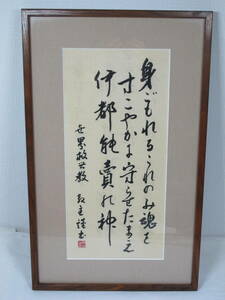 身ごもれるこれのみ魂を
すこやかに守らせたまえ
伊都能賣乃神
世界救世教 教主 謹書